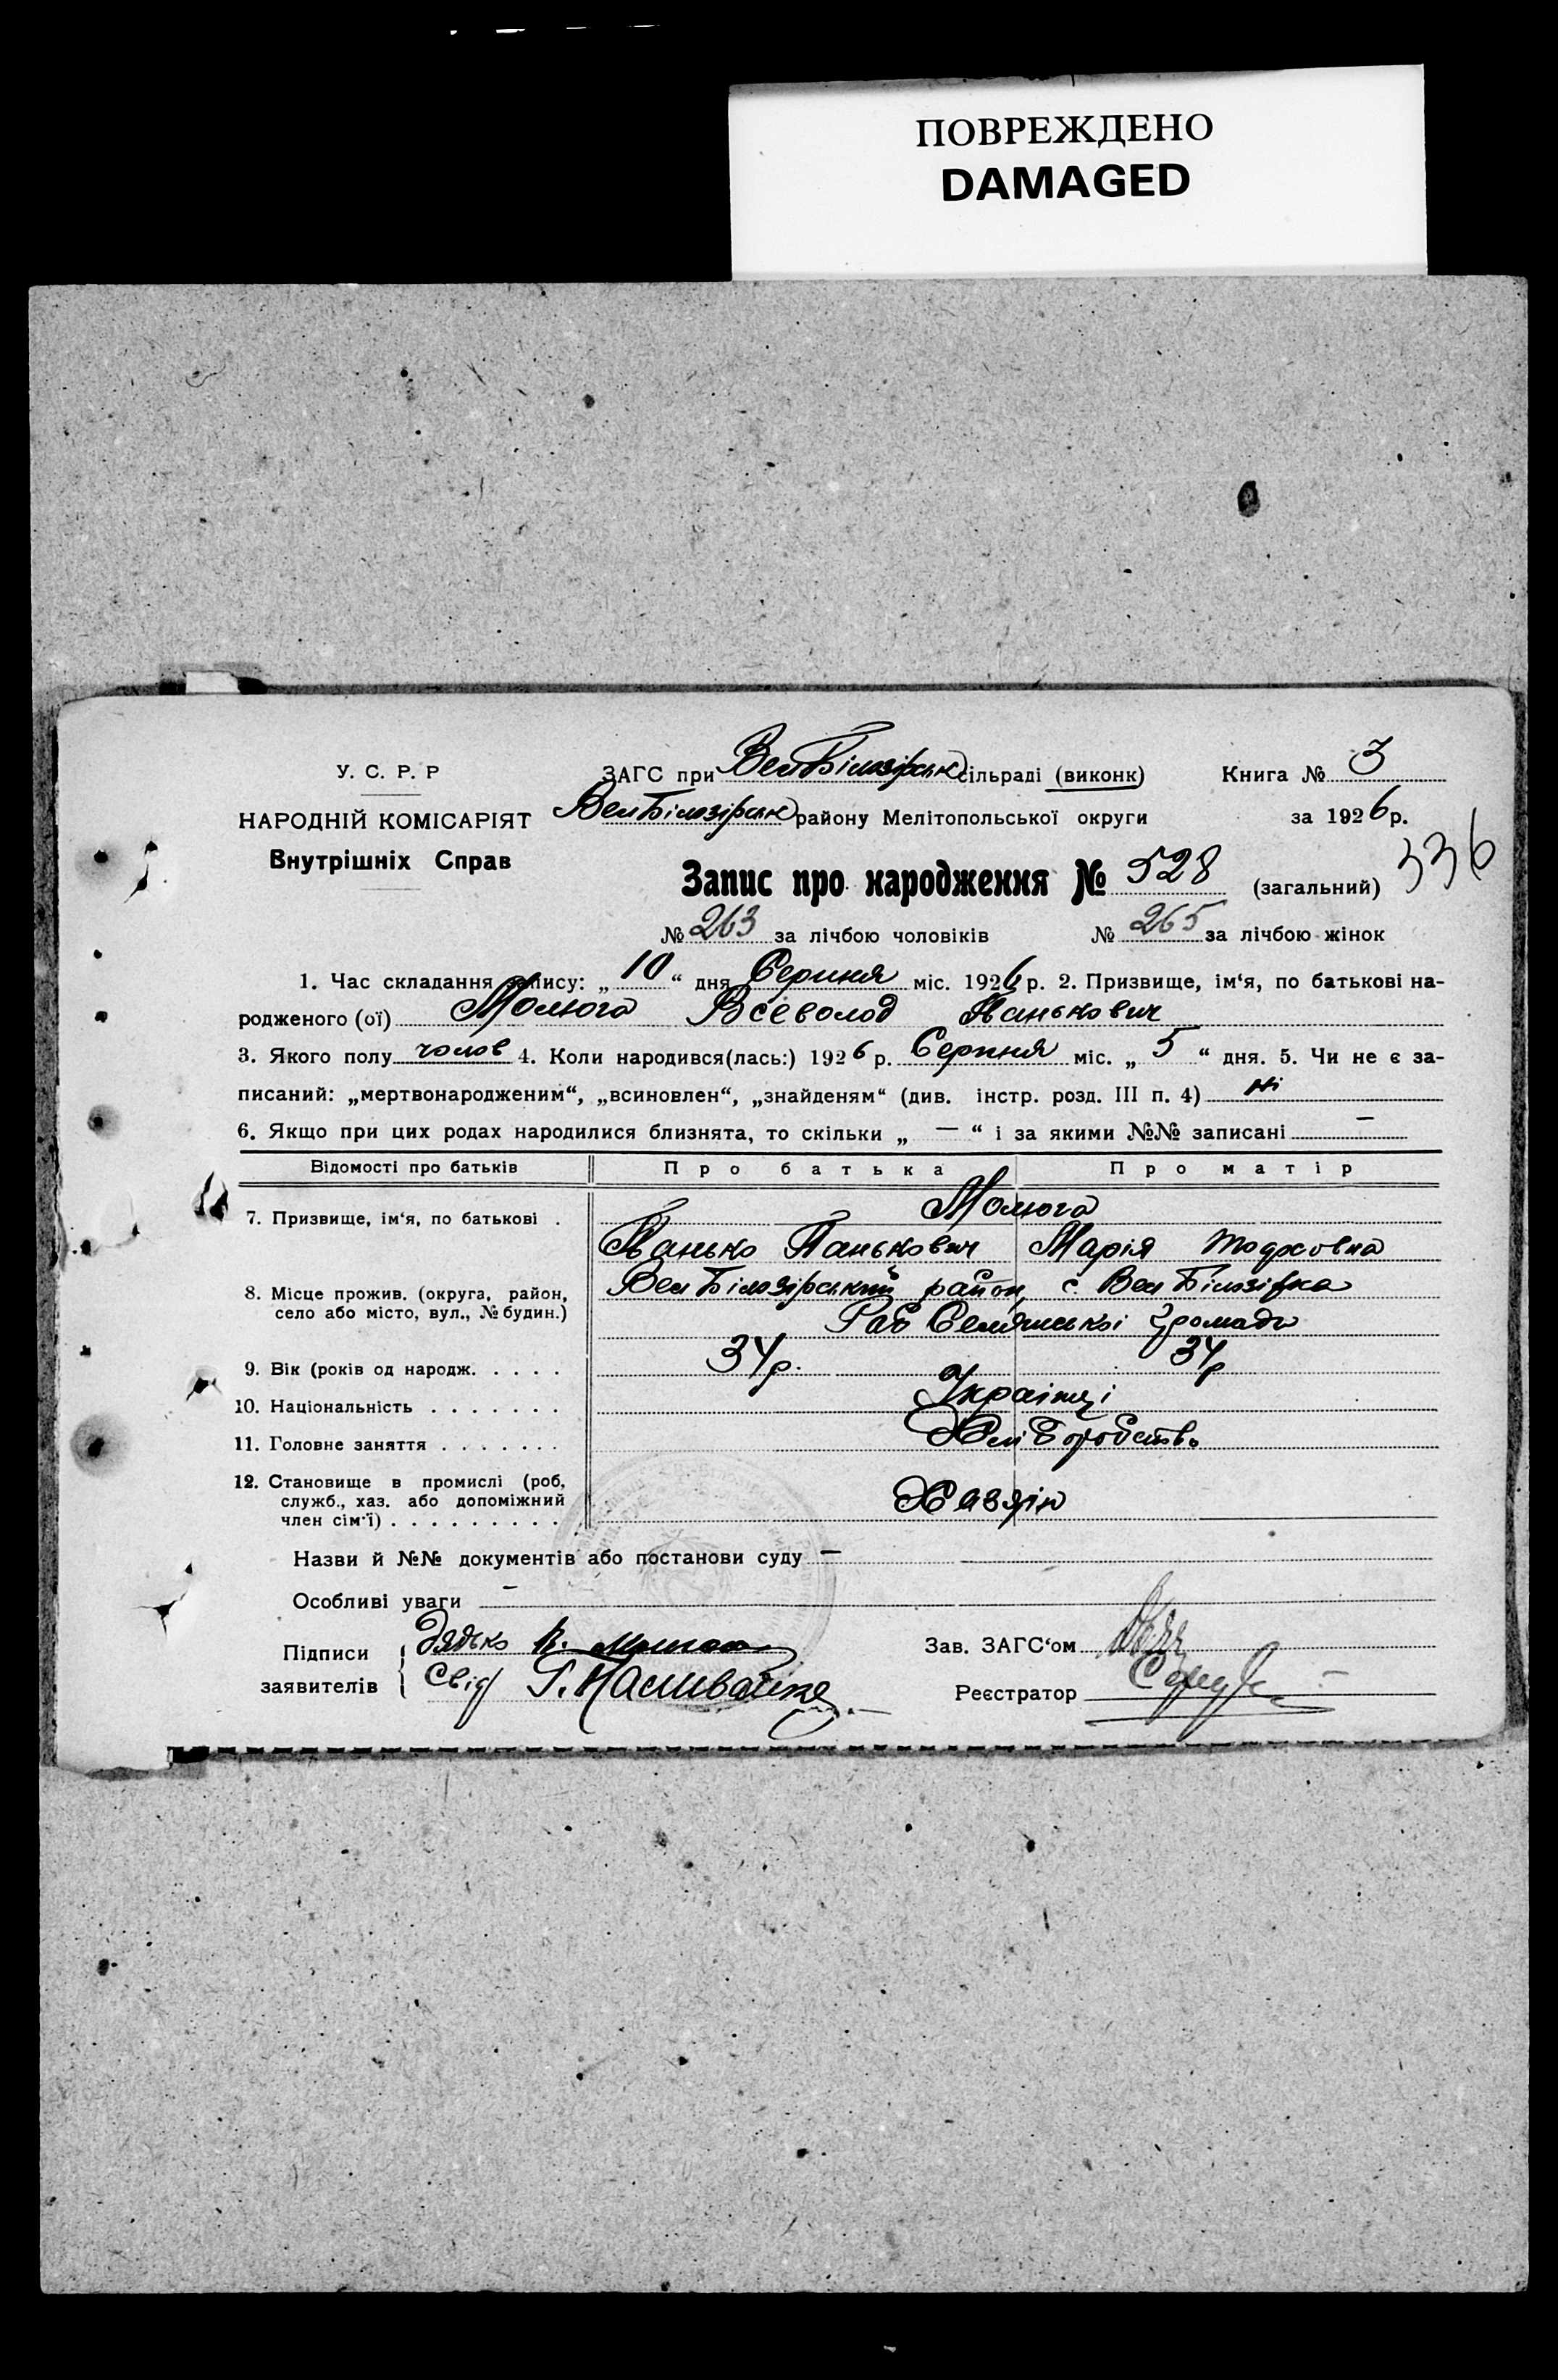 ПОВРЕЖДЕНО
DAMAGED
У. С. Р. Р
НАРОДНІЙ КОМІСАРІЯТ
Внутрішніх Справ
ЗАГС при ВелБілозірськ сільраді (виконк) Книга № 3
ВелБілозірськ району Мелітопольської округи за 1926 р.
336
Запис про народження № 528 (загальний)
№ 263 за лічбою чоловіків № 265 за лічбою жінок
1. Час складання запису: „ 10 “ дня Серпня міс. 1926 р. 2. Призвище, ім‘я, по батькові на-
родженого (ої) Молюга Всеволод Панькович
3. Якого полу чолов 4. Коли народився(лась:) 1926 р. Серпня міс. „ 5 “ дня. 5. Чи не є за-
писаний: „мертвонародженим“, „всиновлен“, „знайденям“ (див. інстр. розд. III п. 4) ні
6. Якщо при цих родах народилися близнята, то скільки „ — “ і за якими №№ записані —
Відомості про батьків Про батька Про матір
7. Призвище, ім‘я, по батькові . Молюга
Панько Панькович Марія Тодосовна
8. Місце прожив. (округа, район, ВелБілозірський район, с. Вел Білозірка
село або місто, вул., № будин.) Селянської громади
9. Вік (років од народж. . . . . 34 р. 34 р
10. Національність . . . . . . . Українці
11. Головне заняття . . . . . . . Хліборобство
12. Становище в промислі (роб, служб., хаз. або допоміжний член сім‘ї) . . . . . . . . . Хазяїн
Назви й №№ документів або постанови суду —
Особливі уваги —
Підписи заявителів Дядько
Свід Г. Наливайко
Зав. ЗАГС‘ом
Реєстратор